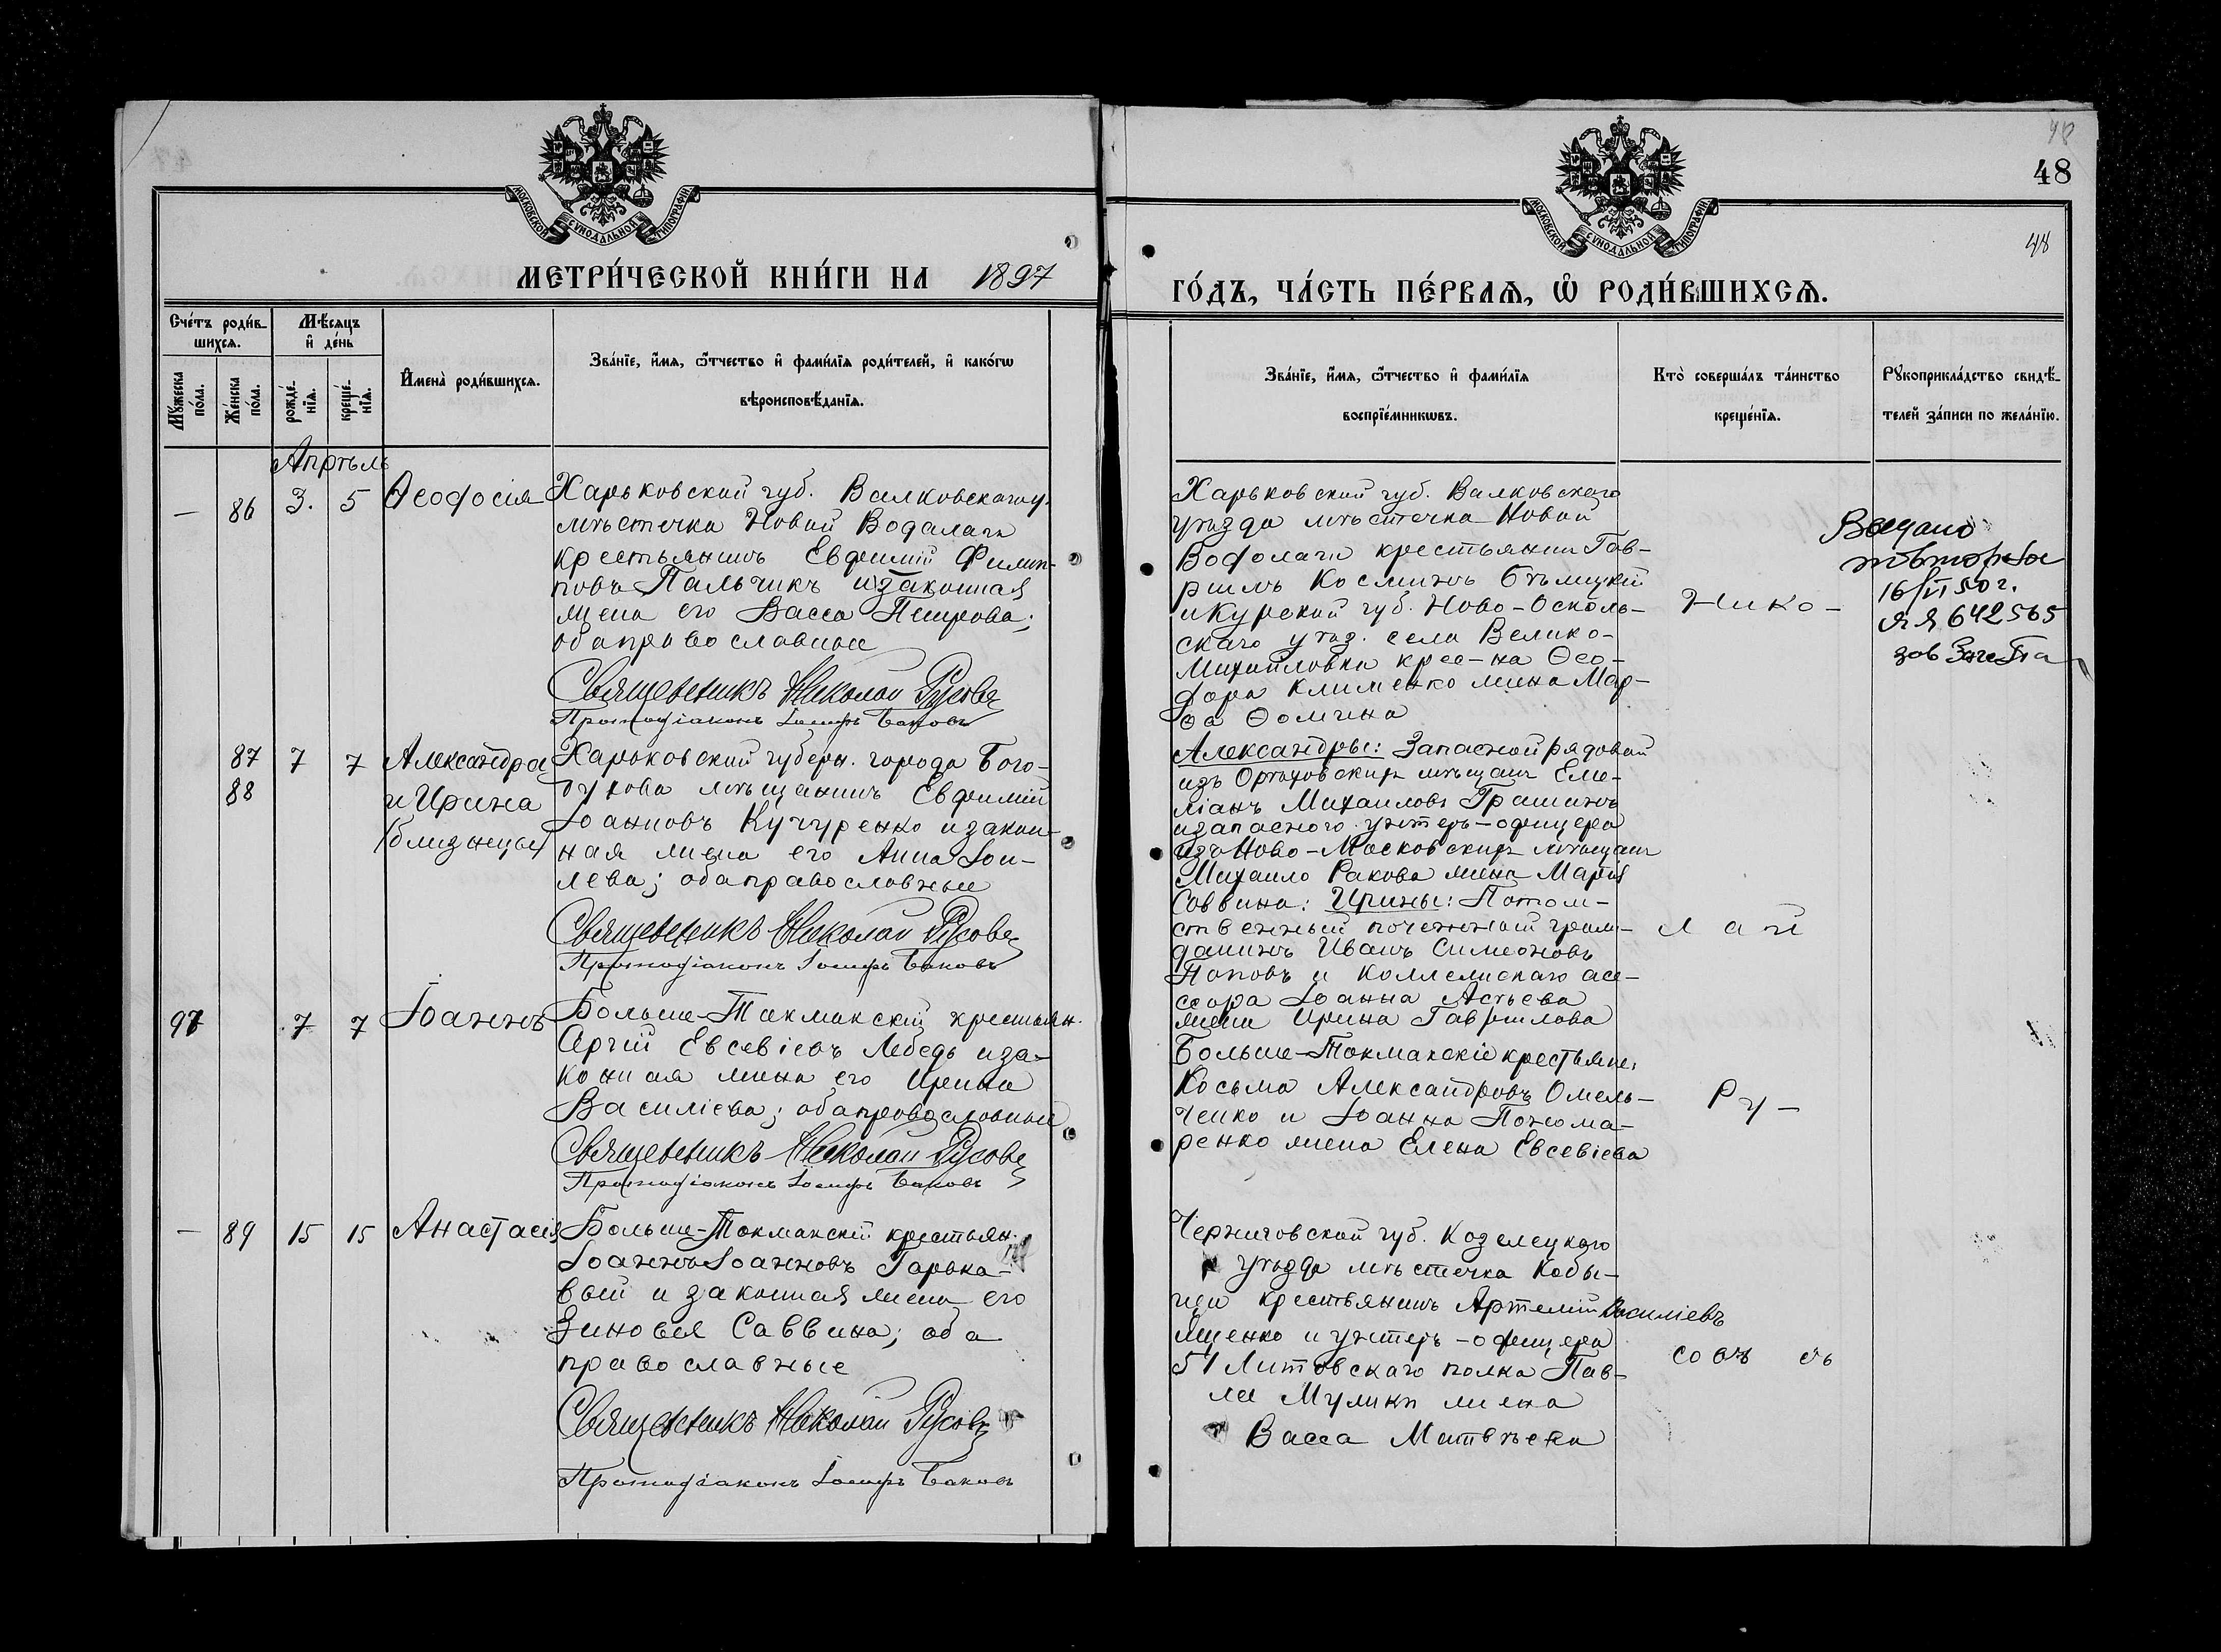 МОСКОВСКОЙ СѴНОДАЛЬНОЙ ТИПОГРАФІИ
МЕТРИ́ЧЕСКОЙ КНИ́ГИ НА 1897
Сче́тъ роди́в-
шихся.
Мѣ́сяцъ
и҆ де́нь
Мꙋ́жеска
по́ла.
Же́нска
по́ла.
рожде́-
нїѧ.
креще́-
нїѧ.
И҆мена̀ роди́вшихсѧ.
Зва́нїе, и҆́мѧ, ѻ҆́тчество и҆ фами́лїѧ роди́телей, и҆ како́гѡ
вѣроисповѣ́данїѧ.
Апрѣль
— 86 3. 5 Ѳеодосія
Харьковской губ. Валковскаго у.
мѣстечка Новой Водалаги
крестьянинъ Евфимій Филип-
повъ Пальчикъ и законная
жена его Васса Петрова;
оба православные
Священникъ Николай Русовъ
Протодіаконъ Іосифъ Баковъ
87 7 7 Александра
88
и Ирина
(близнецы)
Харьковской губерн. города Бого-
духова мѣщанинъ Евфимій
Іоанновъ Кучуренко и закон-
ная жена его Анна Іои-
лева; оба православные
Священникъ Николай Русовъ
Протодіаконъ Іосифъ Баковъ
97 7 7 Іоаннъ
Больше-Токмакскій крестьян.
Сергій Евсевіевъ Лебедь и за-
конная жена его Ирина
Василіева; оба православные
Священникъ Николай Русовъ
Протодіаконъ Іосифъ Баковъ
— 89 15 15 Анастасія
Больше-Токмакскій крестьян.
Іоаннъ Іоанновъ Гарька-
вый и законная жена его
Зиновья Саввина; оба
православные
Священникъ Николай Русовъ
Протодіаконъ Іосифъ Баковъ
48
48
МОСКОВСКОЙ СѴНОДАЛЬНОЙ ТИПОГРАФІИ
48
ГО́ДЪ, ЧА́СТЬ ПЕ́РВАѦ, Ѡ҆ РОДИ́ВШИХСѦ.
Зва́нїе, и҆́мѧ, ѻ҆́тчество и҆ фами́лїѧ
воспрїе́мникѡвъ.
Кто̀ соверша́лъ та́инство
креще́нїѧ.
Рꙋкоприкла́дство свидѣ́-
телей за́писи по жела́нїю.
Харьковской губ. Валковскаго
уѣзда мѣстечка Новой
Водолаги крестьянин Гав-
риилъ Косминъ Бѣлицкій
и Курской губ. Ново-Осколь-
скаго уѣзд. села Велико-
Михайловки крес-на Ѳео-
дора Клименко жена Мар-
ѳа Ѳомина
Александры: Запасной рядовой
изъ Орѣховскихъ мѣщанъ Еме-
ліанъ Михаиловъ Грашинъ
и запасного унтеръ-офицера
изъ Ново-Московскихъ мѣщанъ
Михаило Ракова жена Марія
Саввина: Ирины: Потом-
ственный почетный граж-
данинъ Иванъ Симеоновъ
Поповъ и коллежскаго асе-
сора Іоанна Асѣева
жена Ирина Гавриилова
Больше-Токмакскіе крестьяне:
Косьма Александровъ Омель-
ченко и Іоанна Пономa-
ренко жена Елена Евсевіева
Черниговской губ. Козелецкого
уѣзда мѣстечка Кобы-
щи крестьянинъ Артемій Василіевъ
Яценко и унтеръ-офицера
51 Литовскаго полка Пав-
ла Мулики жена
Васса Матвѣева
Нико-
лай
Ру-
совъ
Выдано
повторное
16/VI 50 г.
ЯЯ 642565
зав